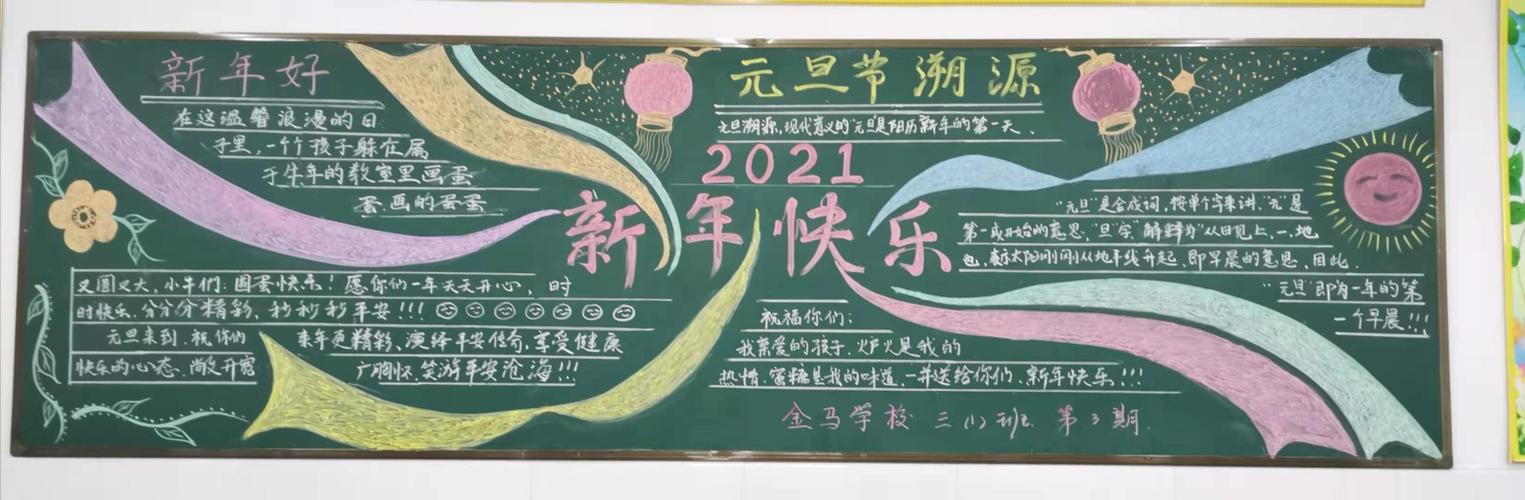 新年好
在这温馨浪漫的日
子里,一个个孩子躲在属
于牛年的教室里画蛋
蛋,画的蛋蛋
又圆又大,小牛们:圆蛋快乐!愿你们一年天天开心,时
时快乐,分分分精彩,秒秒秒平安!!!
元旦来到,祝你们
快乐的心态,尚文开宽
来年更精彩、演绎平安传奇,享受健康
广胸怀,笑游平安沧海!!!
元旦节溯源
元旦溯源,现代意义的"元旦"是阳历新年的第一天、
2021
新年快乐
"元旦"是合成词,按单个字来讲,"元"是
第一或开始的意思,"旦"字"解释为"从日见上,一,地
也,表示太阳刚刚从地平线升起,即早晨的意思,因此.
"元旦"即为一年的第
一个早晨!!!
祝福你们:
我亲爱的孩子,炉火是我的
热情,蜜糖是我的味道,一并送给你们、新年快乐!!!
金马学校 三(1)班 第3期.